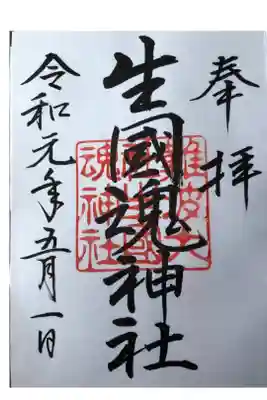 奉拝
生國魂神社
令和元年五月一日
難波大
魂神社